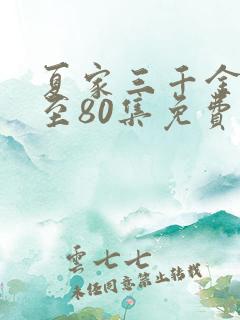 夏家三千金
至80集免費
雲七七
未经同意禁止转载